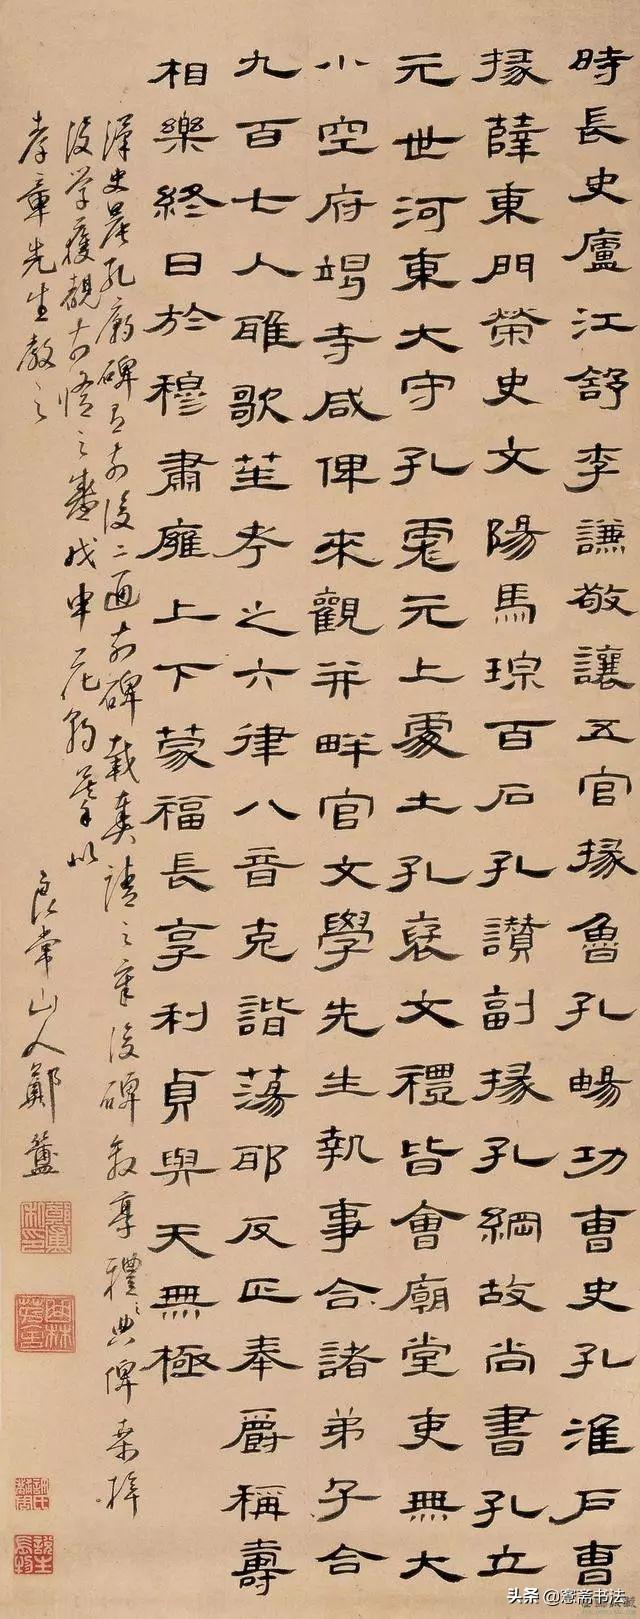 時長史廬江舒李謙敬讓五官掾魯孔暢功曹史孔淮戶曹
掾薛東門榮史文陽馬琮百石孔讃副掾孔綱故尚書孔立
元世河東大守孔彪元上處土孔裦文禮皆會廟堂吏無大
小空府竭寺咸俾來觀并畔官文學先生執事合諸弟子合
九百七人雎歌笙考之六律八音克諧蕩耶反正奉爵稱壽
相樂終日於穆肅廱上下蒙福長享利貞與天無極
漢史晨孔廟碑有前後二通前碑載奏請之章後碑敘享禮之典俾來梓
後學獲觀而悟之 戊申花朝 以
孝章先生教之
良常山人鄭簠
头条@愙斋书法